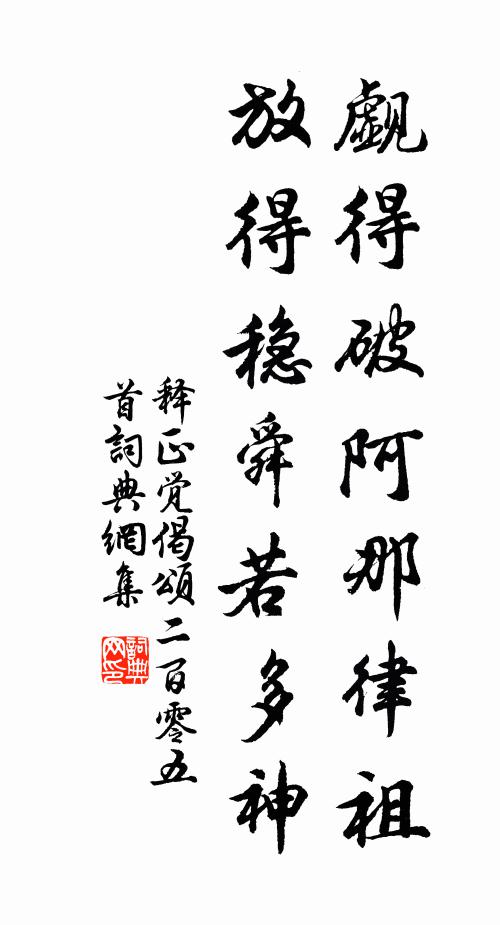 觑得破阿那律祖
放得稳舜若多神
释正觉偈颂二百零五
首詞典網集
詞典网印